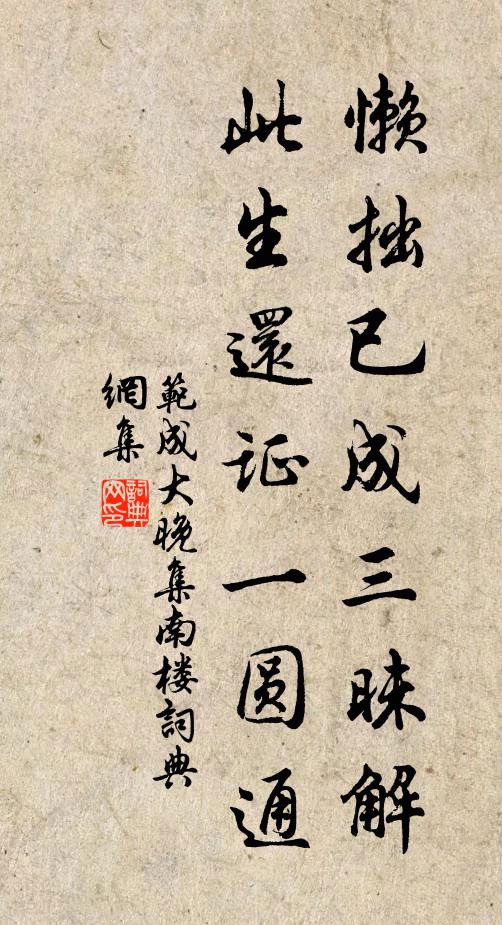 懒拙已成三昧解
此生還证一圆通
範成大晚集南楼詞典
網集
詞典
网印